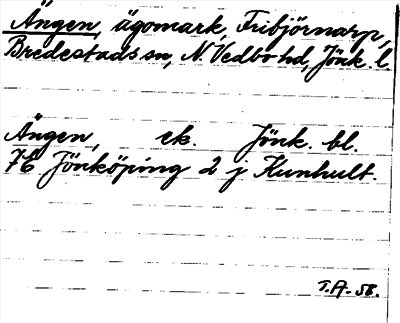 Ängen, ägomark, Fribjörnarp,
Bredestads sn, N. Vedbo hd, Jönk. l.
Ängen, ek. Jönk. bl.
76 Jönköping 2 j Kunhult.
T.A-58.